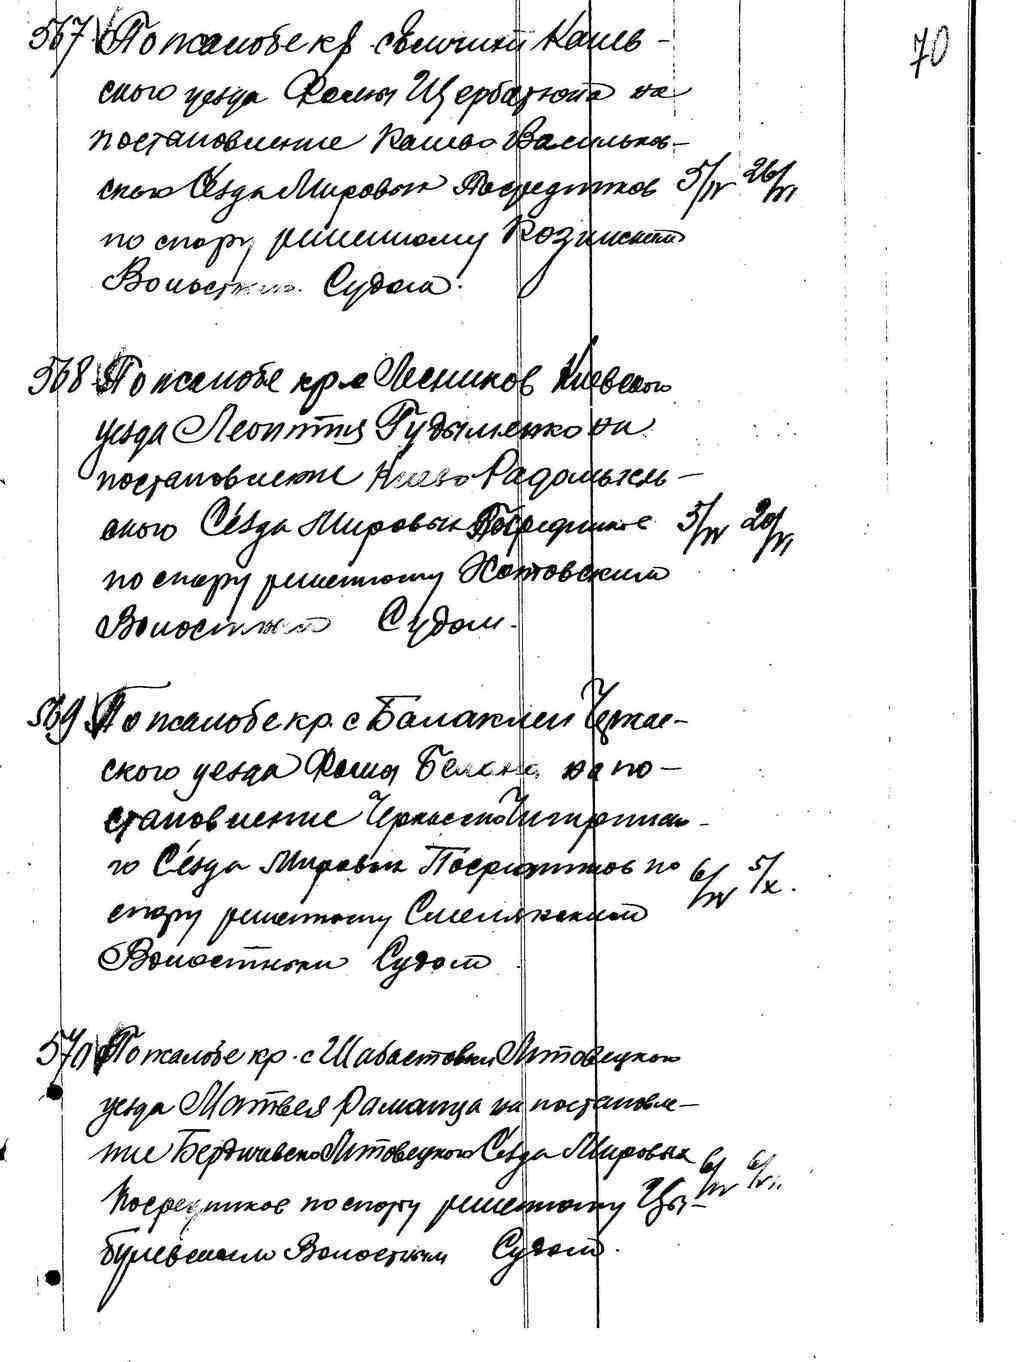 70
567 По жалобе кр. с Величини Канев-
ского уезда Фомы Щербатюка на
постановление Канево Васильков-
ского Съезда Мировых Посредников 5/IV 26/VI
по спору решенному Козинским
Волостным Судом.
568 По жалобе кр. с Лесников Киевского
уезда Леонтия Гудыменко на
постановление Киево Радомысль-
ского Съезда Мировых Посредников 5/IV 20/VI
по спору решенному Хотовским
Волостным Судом.
569 По жалобе кр. с Балаклеи Черкас-
ского уезда Фомы Белана на по-
становление Черкасско Чигиринско-
го Съезда Мировых Посредников по 6/IV 5/X.
спору решенному Смелянским
Волостным Судом
570 По жалобе кр. с Шабастовки Липовецкого
уезда Матвея Раманца на постановле-
ние Бердичевско Липовецкого Съезда Мировых
Посредников по спору решенному Цы- 6/IV
булевским Волостным Судом.